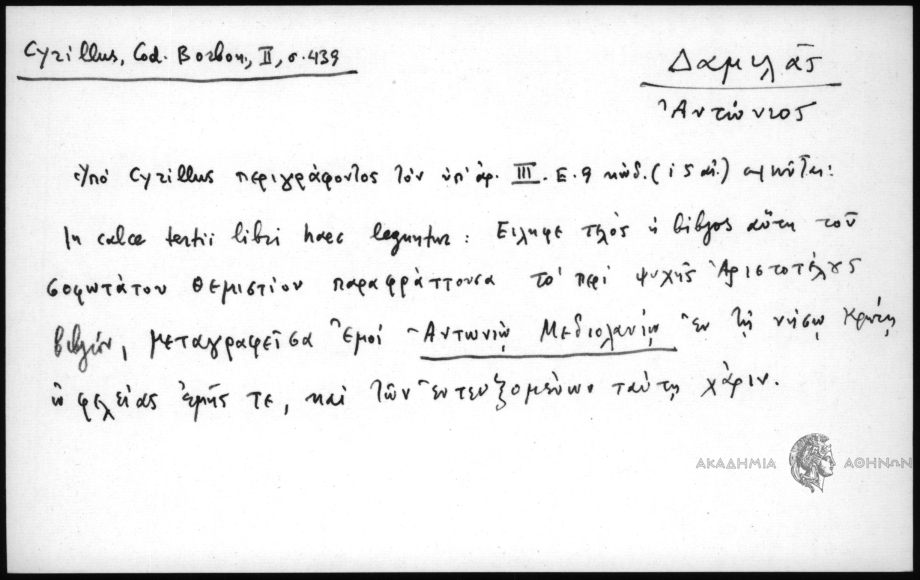 Cyrillus, Cod. Borbon., II, σ. 439
Δαμιλᾶς
Ἀντώνιος
Ὑπὸ Cyrillus περιγράφοντος τὸν ὑπ' ἀρ. III. E. 9 κώδ. (ι 5 αἰ.)
In calce tertii libri haec leguntur: Είληφε τέλος ἡ βίβλος αὕτη τοῦ
σοφωτάτου Θεμιστίου παραφράττουσα τὸ περὶ ψυχῆς Ἀριστοτέλους
βιβλίον, μεταγραφεῖσα Ἐμοί Ἀντωνίῳ Μεδιολανίῳ ἐν τῇ νήσῳ Κρήτης
ὠφελείας ἐμῆς τε, καὶ τῶν ἐντευξομένων ταύτῃ χάριν.
ΑΚΑΔΗΜΙΑ ΑΘΗΝΩΝ